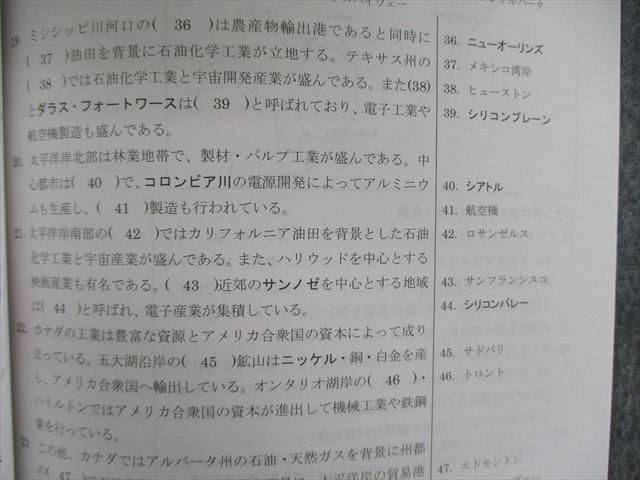 19. ミシシッピ川河口の( 36 )は農産物輸出港であると同時に
( 37 )油田を背景に石油化学工業が立地する。テキサス州の
( 38 )では石油化学工業と宇宙開発産業が盛んである。また(38)
とダラス・フォートワースは( 39 )と呼ばれており、電子工業や
航空機製造も盛んである。
20. 太平洋岸北部は林業地帯で、製材・パルプ工業が盛んである。中
心都市は( 40 )で、コロンビア川の電源開発によってアルミニウ
ムも生産し、( 41 )製造も行われている。
21. 太平洋岸南部の( 42 )ではカリフォルニア油田を背景とした石油
化学工業と宇宙産業が盛んである。また、ハリウッドを中心とする
映画産業も有名である。( 43 )近郊のサンノゼを中心とする地域
は( 44 )と呼ばれ、電子産業が集積している。
22. カナダの工業は豊富な資源とアメリカ合衆国の資本によって成り
立っている。五大湖沿岸の( 45 )鉱山はニッケル・銅・白金を産
し、アメリカ合衆国へ輸出している。オンタリオ湖岸の( 46 )・
ハミルトンではアメリカ合衆国の資本が進出して機械工業や鉄鋼
業を行っている。
23. この他、カナダではアルバータ州の石油・天然ガスを背景に州都
の( 47 )で
太平洋岸の貿易港
36. ニューオーリンズ
37. メキシコ湾岸
38. ヒューストン
39. シリコンプレーン
40. シアトル
41. 航空機
42. ロサンゼルス
43. サンフランシスコ
44. シリコンバレー
45. サドバリ
46. トロント
47. エドモントン